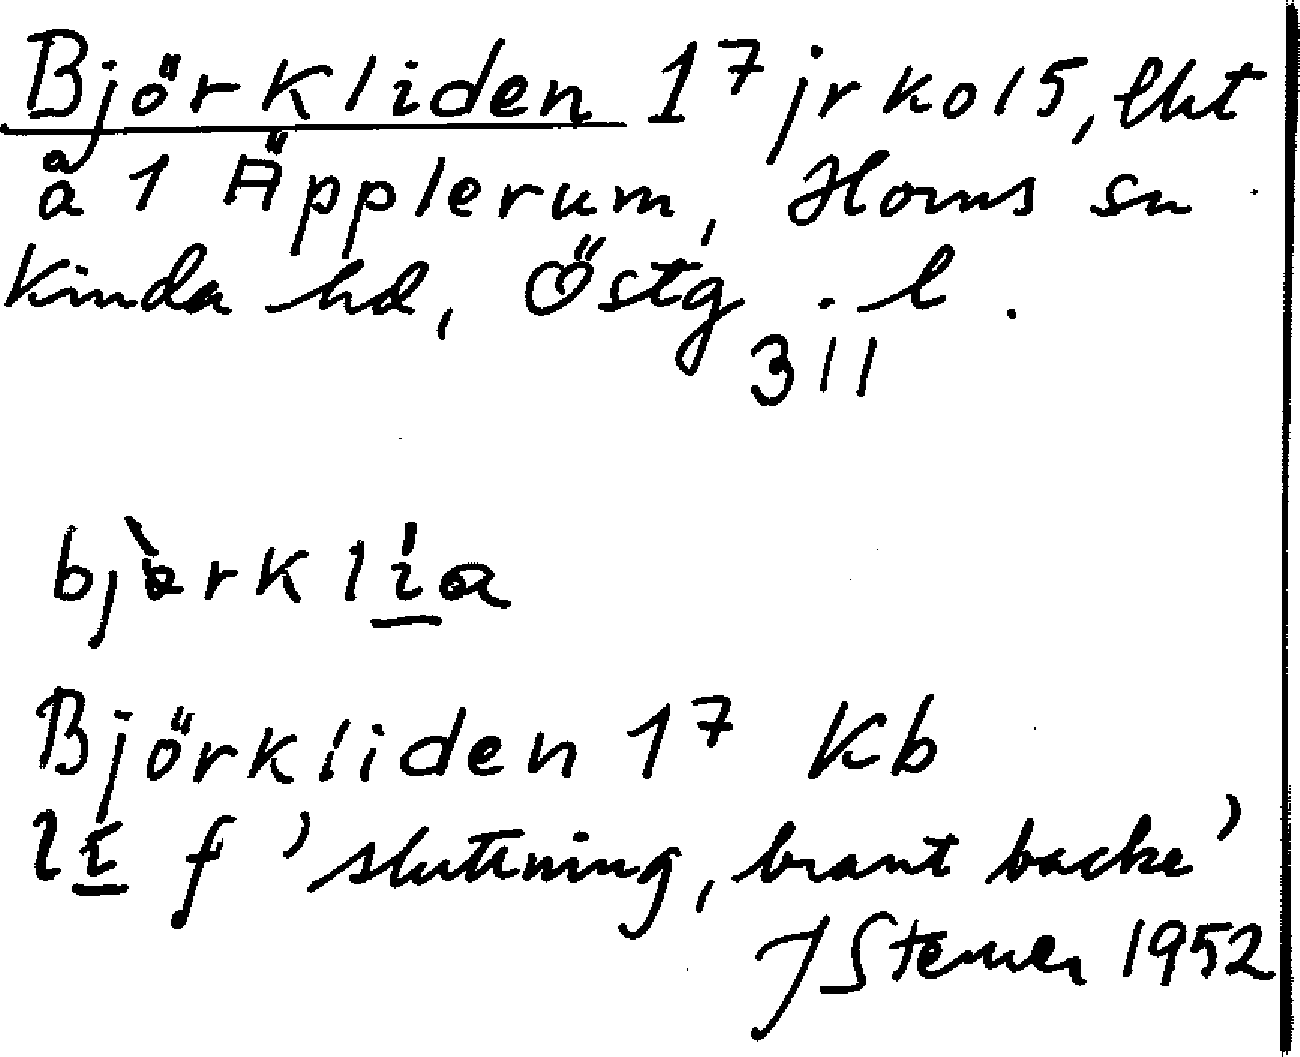 Björkliden 1⁷ jr ko 15, lht
å 1 Äpplerum, Horns sn
Kinda hd, Östg. l.
311
bjàrklia
Björkliden 1⁷ Kb
li f 'sluttning, brant backe'
J Sterner 1952